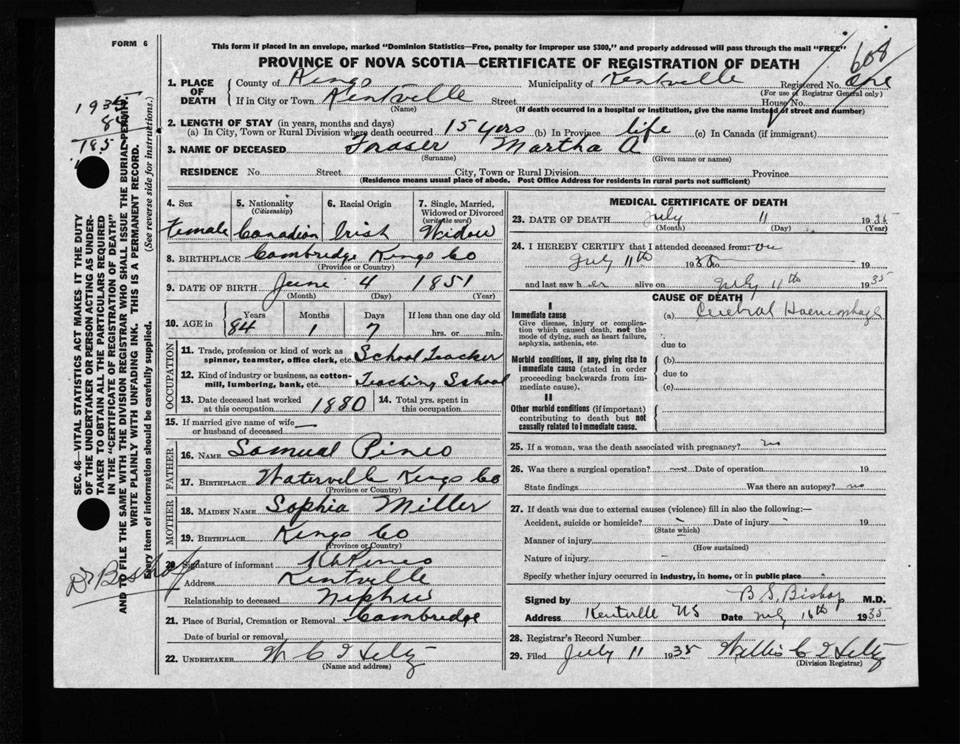 FORM 6
This form if placed in an envelope, marked "Dominion Statistics—Free, penalty for improper use $300," and properly addressed will pass through the mail "FREE"
PROVINCE OF NOVA SCOTIA—CERTIFICATE OF REGISTRATION OF DEATH
608
1. PLACE OF DEATH County of Kings Municipality of Kentville Registered No. one
(For use of Registrar General only)
If in City or Town Kentville Street House No.
(Name) (If death occurred in a hospital or institution, give the name instead of street and number)
2. LENGTH OF STAY (in years, months and days)
(a) In City, Town or Rural Division where death occurred 15 yrs (b) In Province life (c) In Canada (if immigrant)
3. NAME OF DECEASED Fraser Martha A
(Surname) (Given name or names)
RESIDENCE No. Street City, Town or Rural Division Province
(Residence means usual place of abode. Post Office Address for residents in rural parts not sufficient)
4. Sex Female
5. Nationality (Citizenship) Canadian
6. Racial Origin Irish
7. Single, Married, Widowed or Divorced (write the word) Widow
8. BIRTHPLACE Cambridge Kings Co
(Province or Country)
9. DATE OF BIRTH June 4 1851
(Month) (Day) (Year)
10. AGE in Years 84 Months 1 Days 7 If less than one day old hrs. or min.
OCCUPATION
11. Trade, profession or kind of work as spinner, teamster, office clerk, etc. School Teacher
12. Kind of industry or business, as cotton-mill, lumbering, bank, etc. Teaching School
13. Date deceased last worked at this occupation 1880 14. Total yrs. spent in this occupation
15. If married give name of wife or husband of deceased —
FATHER
16. NAME Samuel Pineo
17. BIRTHPLACE Waterville Kings Co
(Province or Country)
MOTHER
18. MAIDEN NAME Sophia Miller
19. BIRTHPLACE Kings Co
(Province or Country)
20. Signature of informant Pineo
Address Kentville
Relationship to deceased Nephew
21. Place of Burial, Cremation or Removal Cambridge
Date of burial or removal
22. UNDERTAKER W C
(Name and address)
MEDICAL CERTIFICATE OF DEATH
23. DATE OF DEATH July 11 1935
(Month) (Day) (Year)
24. I HEREBY CERTIFY that I attended deceased from:
July 11th 1935 19
and last saw her alive on July 11th 1935
CAUSE OF DEATH
I
Immediate cause (a) Cerebral Haemorrhage
Give disease, injury or complication which caused death, not the mode of dying, such as heart failure, asphyxia, asthenia, etc.
due to
Morbid conditions, if any, giving rise to immediate cause (stated in order proceeding backwards from immediate cause).
(b)
due to
(c)
II
Other morbid conditions (if important) contributing to death but not causally related to immediate cause.
25. If a woman, was the death associated with pregnancy? no
26. Was there a surgical operation? Date of operation 19
State findings Was there an autopsy? no
27. If death was due to external causes (violence) fill in also the following:—
Accident, suicide or homicide? Date of injury 19
(State which)
Manner of injury
(How sustained)
Nature of injury
Specify whether injury occurred in industry, in home, or in public place
Signed by B S. Bishop M.D.
Address Kentville NS Date July 16th 1935
28. Registrar's Record Number
29. Filed July 11 1935 Willis C
(Division Registrar)
SEC. 46—VITAL STATISTICS ACT MAKES IT THE DUTY
OF THE UNDERTAKER OR PERSON ACTING AS UNDER-
TAKER TO OBTAIN ALL THE PARTICULARS REQUIRED
IN THE "CERTIFICATE OF REGISTRATION OF DEATH"
AND TO FILE THE SAME WITH THE DIVISION REGISTRAR WHO SHALL ISSUE THE BURIAL PERMIT.
WRITE PLAINLY WITH UNFADING INK. THIS IS A PERMANENT RECORD.
Every item of information should be carefully supplied. (See reverse side for instructions.)
1935
84
Dr Bishop